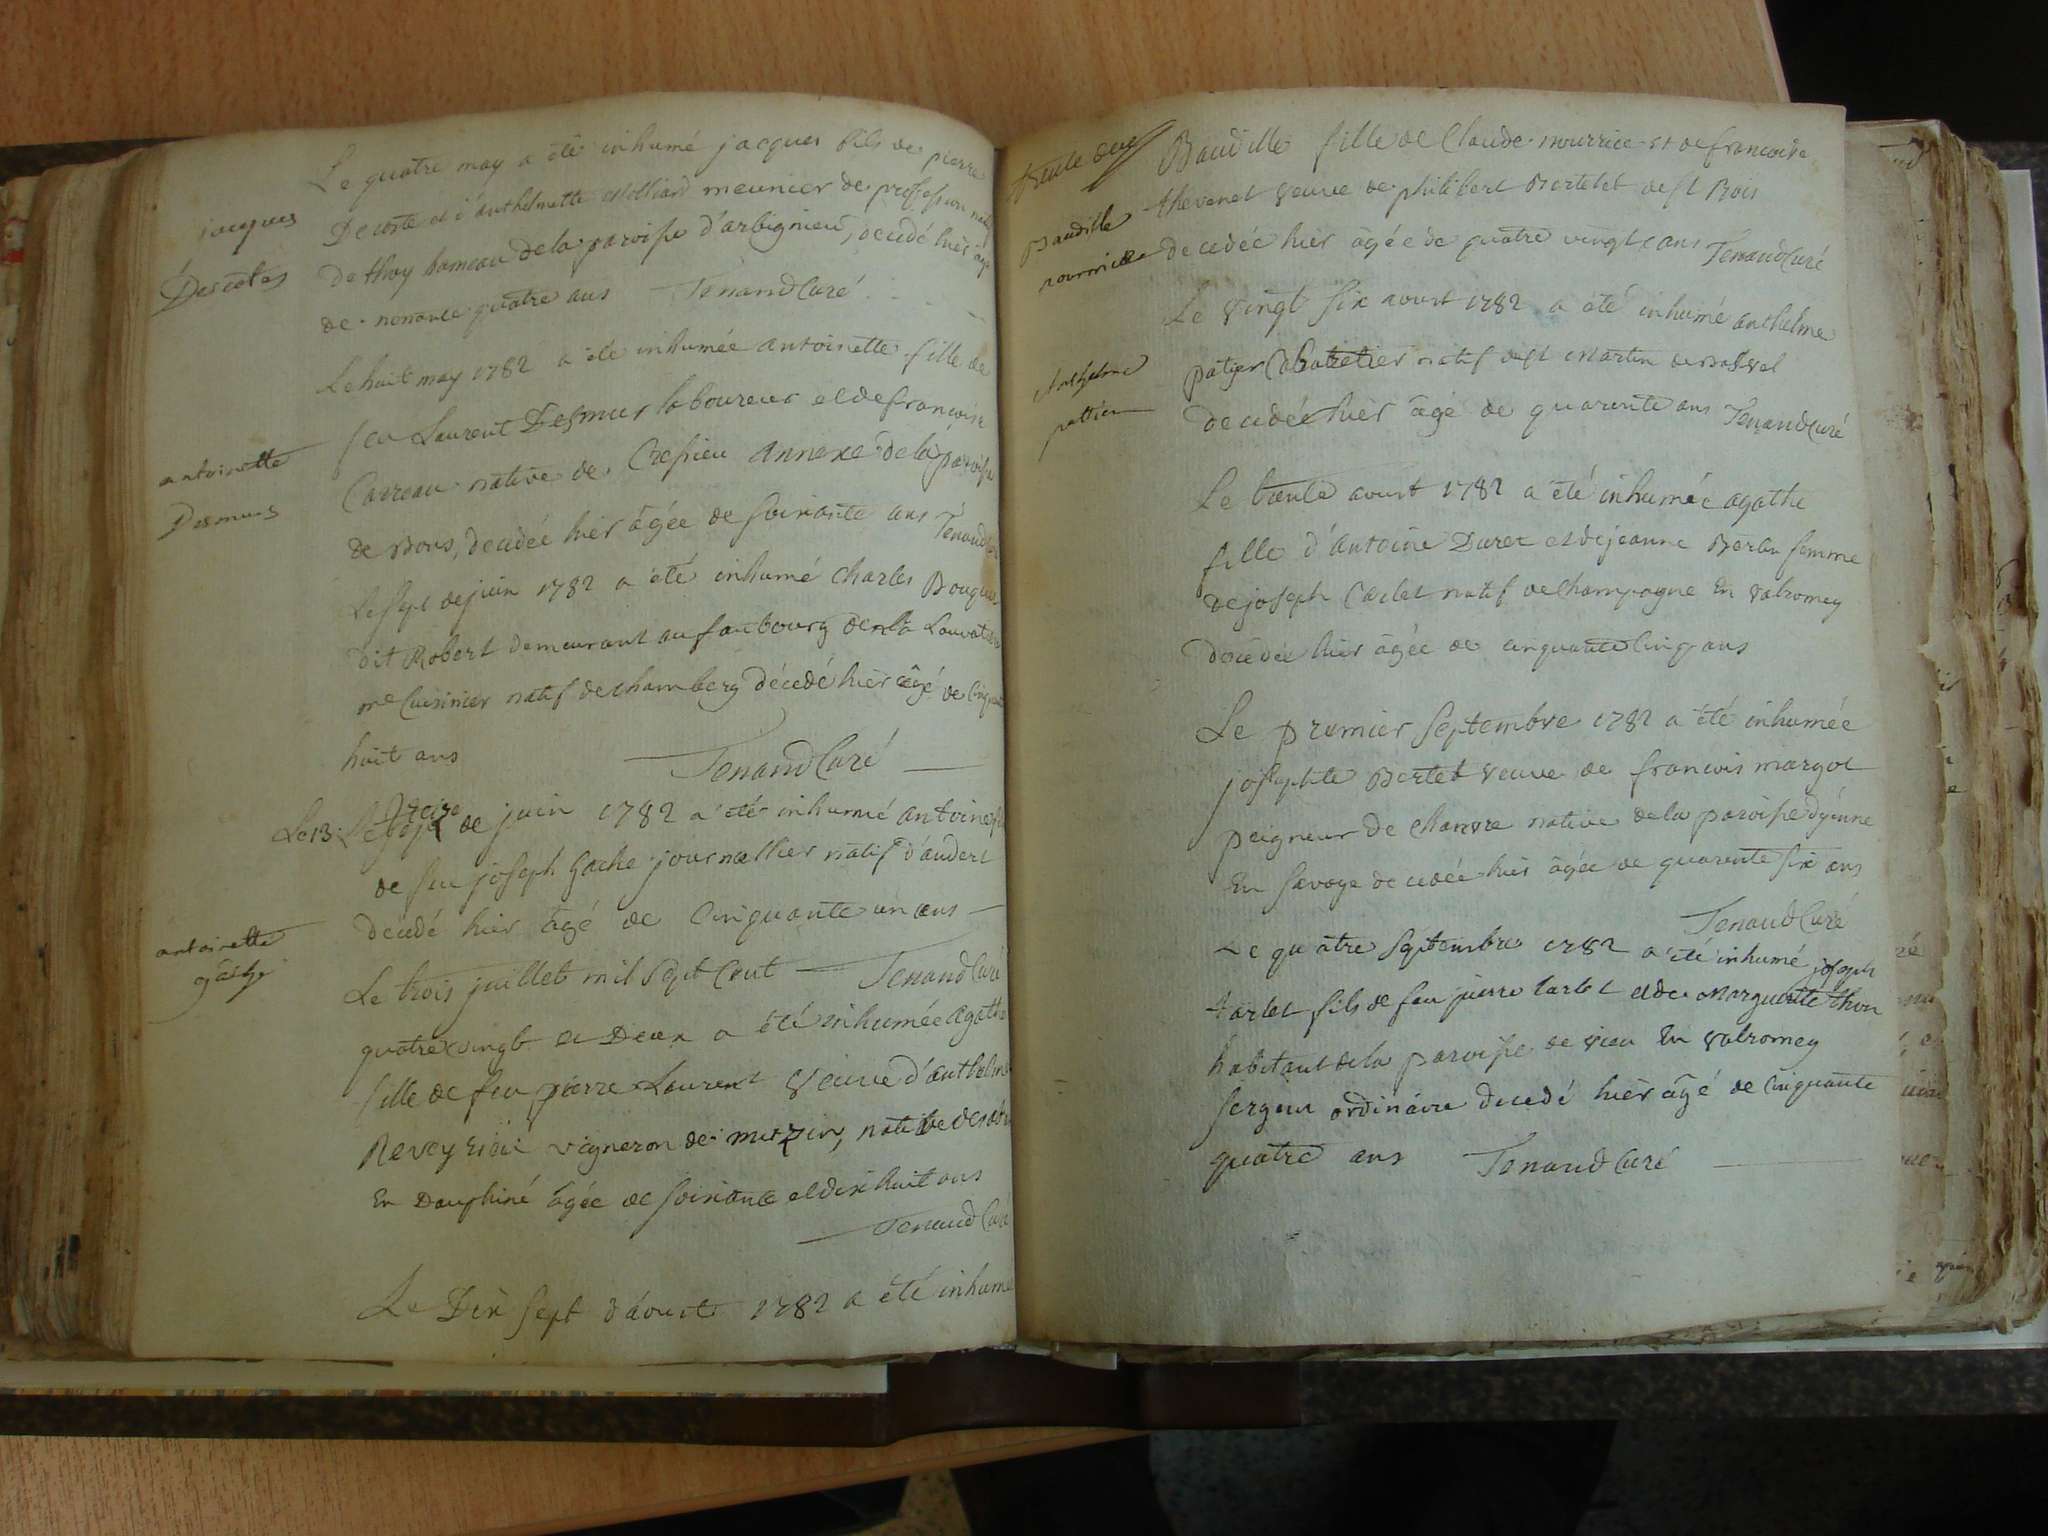 Le quatre may a été inhumé jacques fils de pierre
jacques
Decoste et d'anthelmette Molliard meunier de profession
Descotes
de thoy hameau de la paroisse d'arbignieu, decedé hier agé
de nonante quatre ans Tenand Curé
Le huit may 1782 a été inhumée antoinette fille de
feu Laurent Desmur laboureur et de francoise
antoinette
Carreau native de Crepieu annexe de la paroisse
Desmurs
de Bons, decedée hier âgée de soixante ans Tenand
Le sept de juin 1782 a été inhumé charles
dit Robert demeurant au faubourg de la
me Cuisinier natif de chambery décedé hier âgé de
huit ans
Tenand Curé
Le 13 treize de juin 1782 a été inhumé antoine
de feu joseph gache journallier natif d'andert
decedé hier âgé de Cinquante un ans
antoinette
gache
Le trois juillet mil sept Cent Tenand Curé
quatre vingt et Deux a été inhumée agathe
fille de feu pierre Laurent veuve d'anthelme
vigneron de native de
En Dauphiné âgée de soixante et dix huit ans
Tenand Curé
Le Dix sept d'aoust 1782 a été inhumé
trente deux
Baudille fille de Claude nourrice et de francoise
thevenet veuve de philibert Bertelet de st Bois
Baudille
nourrice
decedée hier âgée de quatre vingt ans Tenand Curé
Le vingt six aoust 1782 a été inhumé anthelme
patier natif de st Martin de
anthelme
patier
decedée hier âgé de quarante ans Tenand Curé
Le trente aoust 1782 a été inhumée agathe
fille d'antoine Duret et de jeanne femme
de joseph Carlet natif de Champagne En valromey
decedée hier âgée de cinquante Cinq ans
Le premier septembre 1782 a été inhumée
josephte Bertet veuve de francois margot
peigneur de chanvre native de la paroisse dyenne
En savoye decedée hier âgée de quarante six ans
Tenand Curé
Le quatre septembre 1782 a été inhumé joseph
fils de feu pierre et de Marguerite
habitant de la paroisse de vieu En valromey
ordinaire decedé hier âgé de Cinquante
quatre ans Tenand Curé